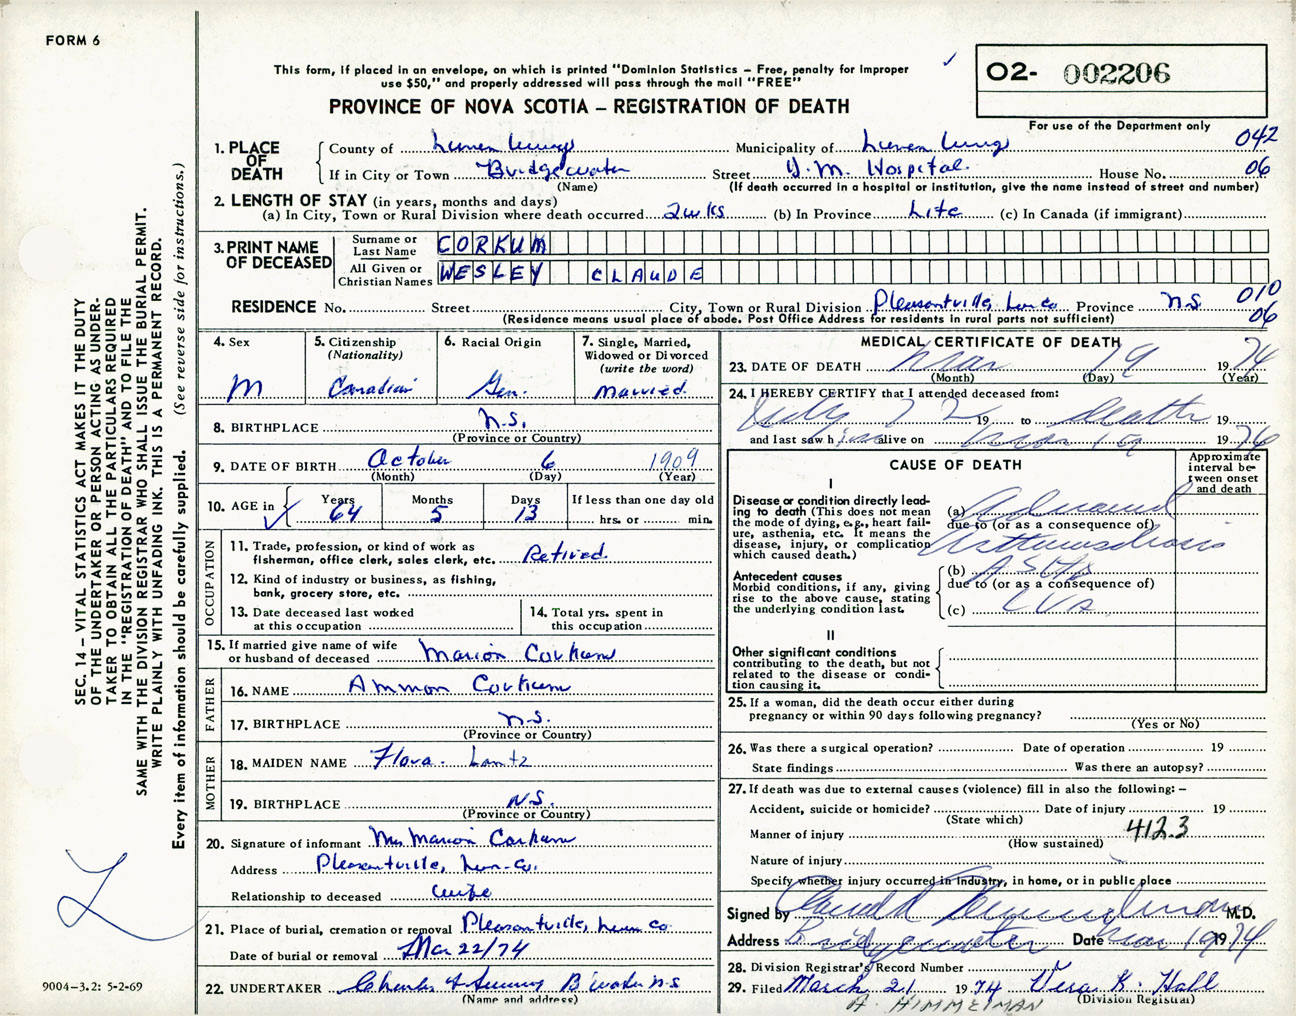 FORM 6
This form, if placed in an envelope, on which is printed "Dominion Statistics – Free, penalty for improper
use $50," and properly addressed will pass through the mail "FREE"
PROVINCE OF NOVA SCOTIA – REGISTRATION OF DEATH
O2- 002206
For use of the Department only
1. PLACE OF DEATH
County of Lunenburg Municipality of Lunenburg 042
If in City or Town Bridgewater Street D.M. Hospital House No. 06
(Name) (If death occurred in a hospital or institution, give the name instead of street and number)
2. LENGTH OF STAY (in years, months and days)
(a) In City, Town or Rural Division where death occurred 2 wks (b) In Province Life (c) In Canada (if immigrant)
3. PRINT NAME OF DECEASED
Surname or Last Name CORKUM
All Given or Christian Names WESLEY CLAUDE
RESIDENCE No. Street City, Town or Rural Division Pleasantville, Lun. Co. Province N.S. 010
(Residence means usual place of abode. Post Office Address for residents in rural parts not sufficient) 06
4. Sex
M
5. Citizenship
(Nationality)
Canadian
6. Racial Origin
Ger.
7. Single, Married,
Widowed or Divorced
(write the word)
Married.
8. BIRTHPLACE N.S.
(Province or Country)
9. DATE OF BIRTH October 6 1909
(Month) (Day) (Year)
10. AGE in Years Months Days If less than one day old
64 5 13 hrs. or min.
OCCUPATION
11. Trade, profession, or kind of work as
fisherman, office clerk, sales clerk, etc. Retired.
12. Kind of industry or business, as fishing,
bank, grocery store, etc.
13. Date deceased last worked
at this occupation
14. Total yrs. spent in
this occupation
15. If married give name of wife
or husband of deceased Marion Corkum
FATHER
16. NAME Ammon Corkum
17. BIRTHPLACE N.S.
(Province or Country)
MOTHER
18. MAIDEN NAME Flora Lantz
19. BIRTHPLACE N.S.
(Province or Country)
20. Signature of informant Mrs Marion Corkum
Address Pleasantville, Lun. Co.
Relationship to deceased wife
21. Place of burial, cremation or removal Pleasantville, Lun. Co.
Date of burial or removal Mar 22/74
22. UNDERTAKER B'water N.S.
(Name and address)
MEDICAL CERTIFICATE OF DEATH
23. DATE OF DEATH Mar 19 1974
(Month) (Day) (Year)
24. I HEREBY CERTIFY that I attended deceased from:
July 72 19 to death 19
and last saw him alive on Mar 19 1974
CAUSE OF DEATH
Approximate
interval be-
tween onset
and death
I
Disease or condition directly lead-
ing to death (This does not mean
the mode of dying, e.g., heart fail-
ure, asthenia, etc. It means the
disease, injury, or complication
which caused death.)
(a) Advanced
due to (or as a consequence of)
Antecedent causes
Morbid conditions, if any, giving
rise to the above cause, stating
the underlying condition last.
(b) ASHD
due to (or as a consequence of)
(c) CVA
II
Other significant conditions
contributing to the death, but not
related to the disease or condi-
tion causing it.
25. If a woman, did the death occur either during
pregnancy or within 90 days following pregnancy?
(Yes or No)
26. Was there a surgical operation? Date of operation 19
State findings Was there an autopsy?
27. If death was due to external causes (violence) fill in also the following: –
Accident, suicide or homicide? Date of injury 19
(State which)
Manner of injury 412.3
(How sustained)
Nature of injury
Specify whether injury occurred in industry, in home, or in public place
Signed by M.D.
Address Bridgewater Date Mar 19 1974
28. Division Registrar's Record Number
29. Filed March 21 1974 Vera K. Hall
(Division Registrar)
A. HIMMELMAN
SEC. 14 – VITAL STATISTICS ACT MAKES IT THE DUTY
OF THE UNDERTAKER OR PERSON ACTING AS UNDER-
TAKER TO OBTAIN ALL THE PARTICULARS REQUIRED
IN THE "REGISTRATION OF DEATH" AND TO FILE THE
SAME WITH THE DIVISION REGISTRAR WHO SHALL ISSUE THE BURIAL PERMIT.
WRITE PLAINLY WITH UNFADING INK. THIS IS A PERMANENT RECORD.
Every item of information should be carefully supplied. (See reverse side for instructions.)
L
9004-3.2: 5-2-69